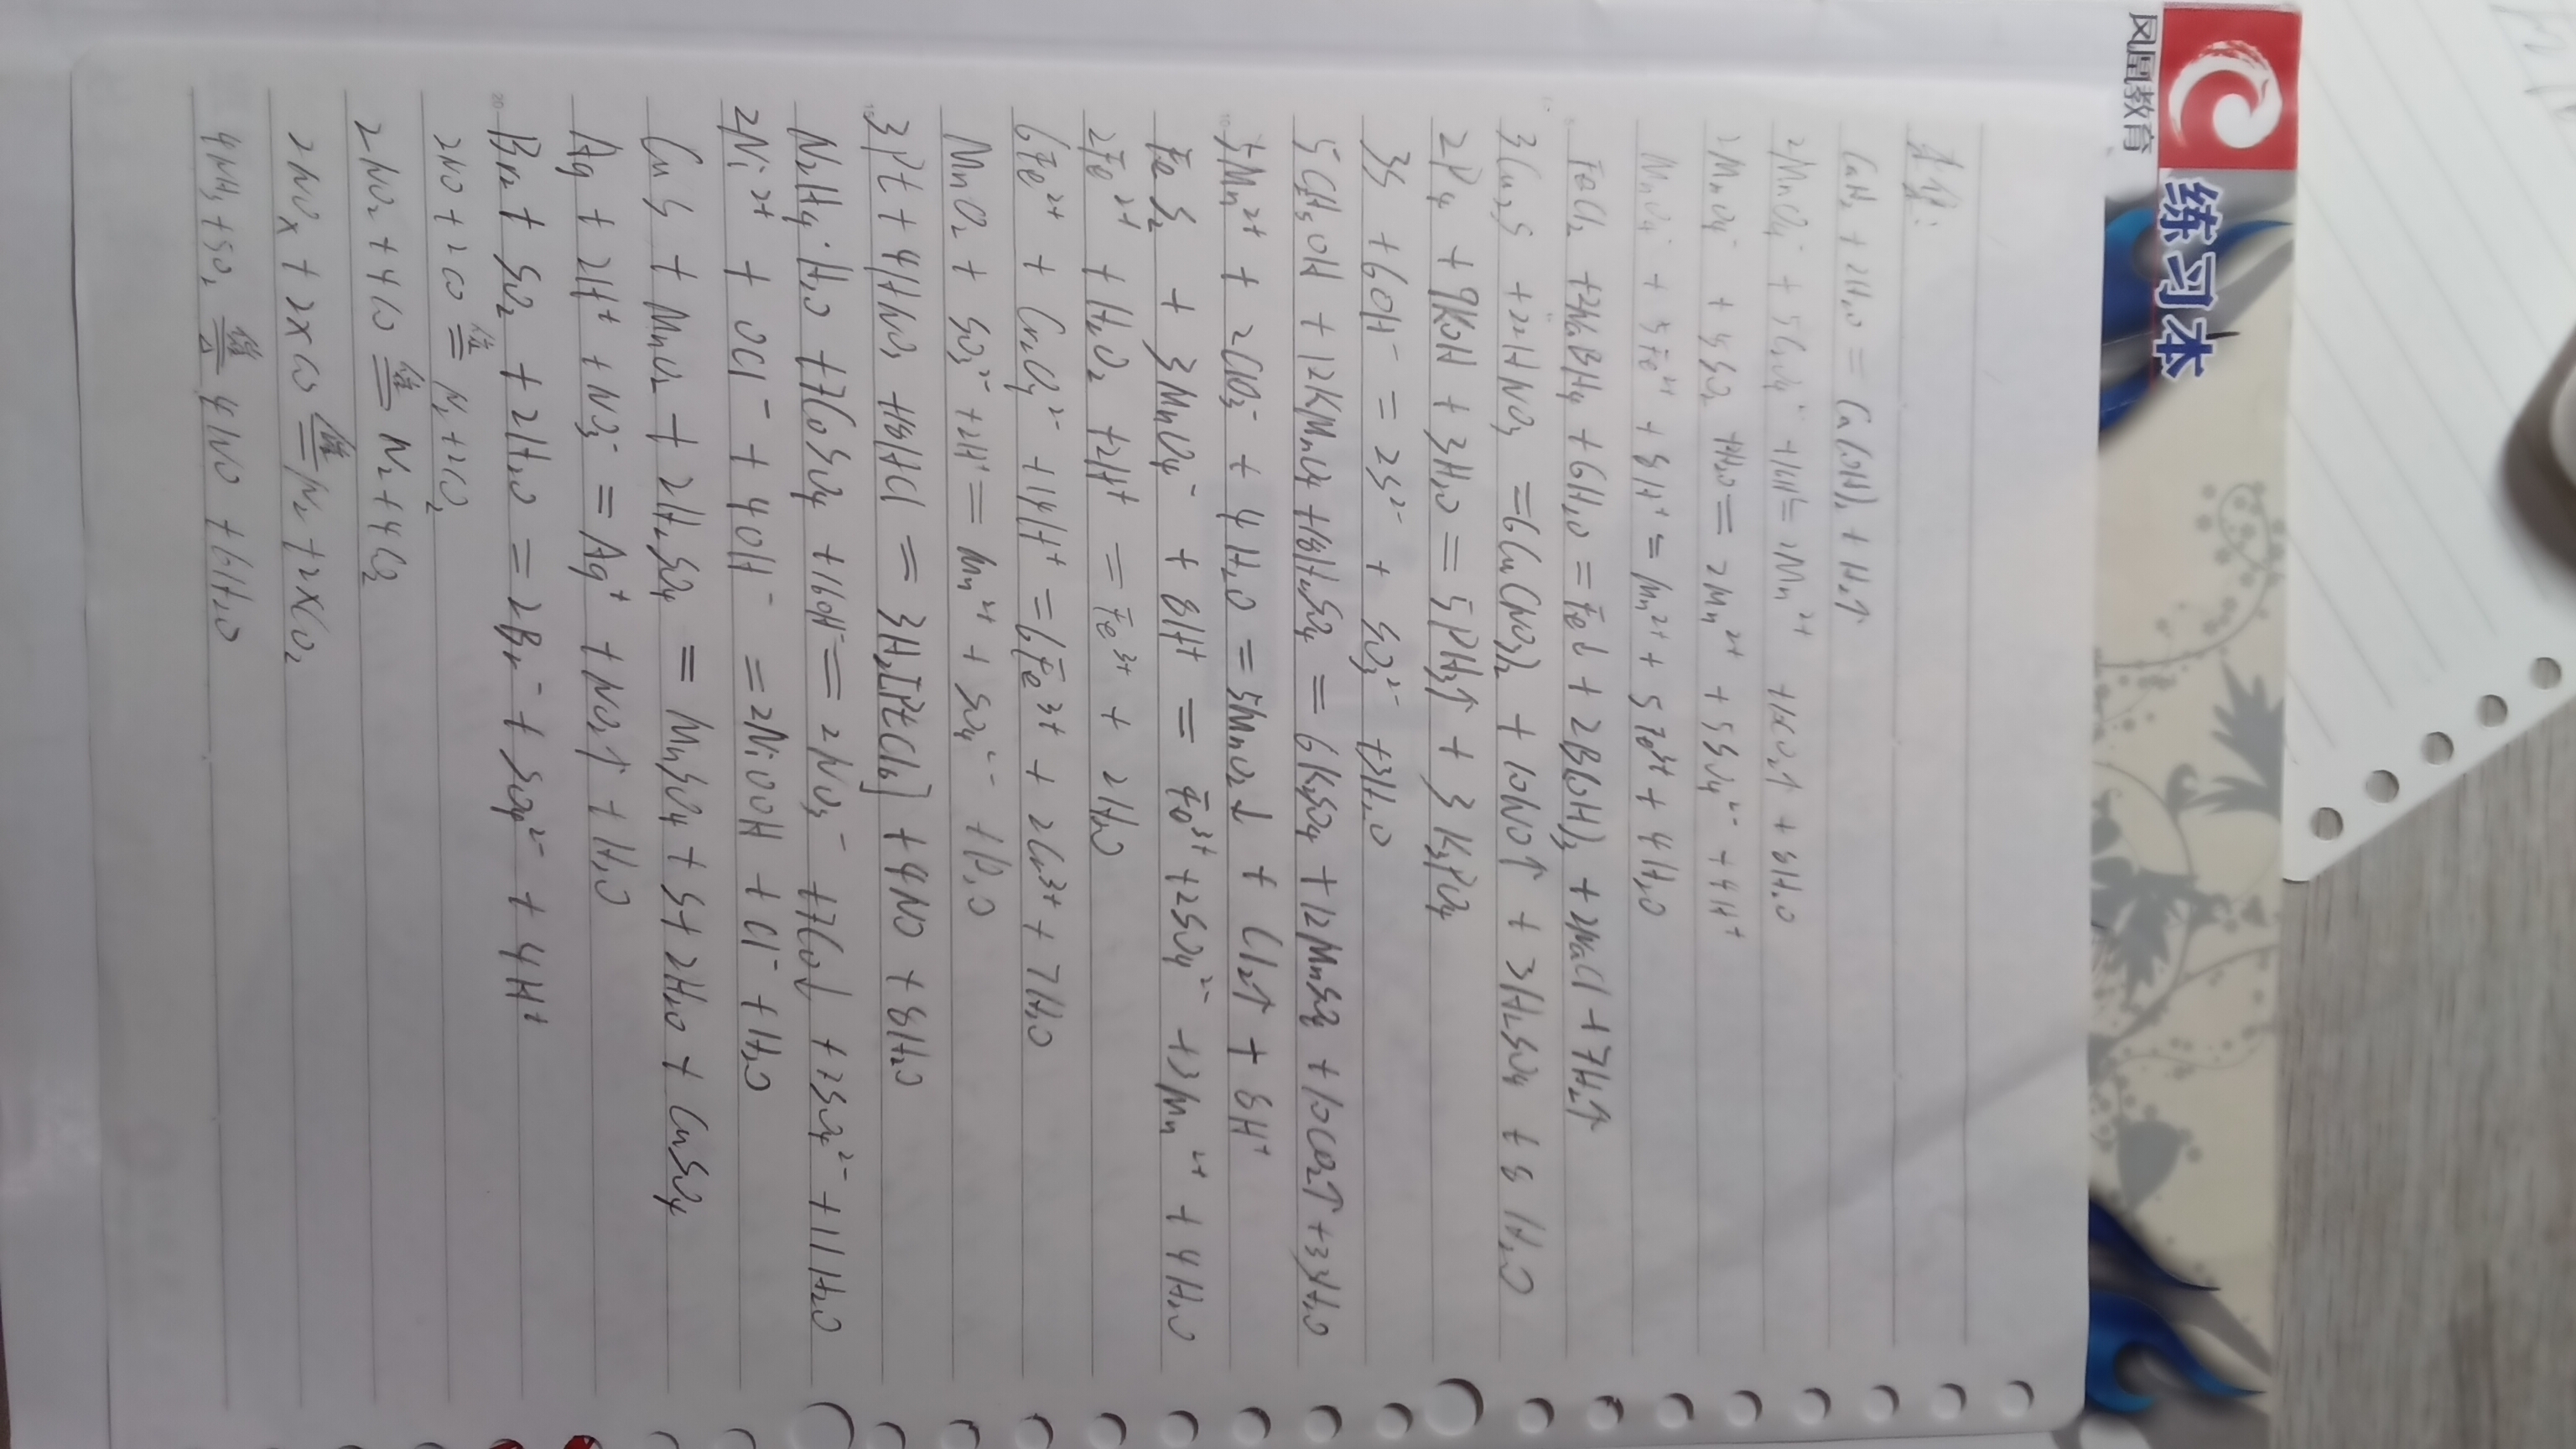 凤凰教育
练习本
CaH₂ + 2H₂O = Ca(OH)₂ + H₂↑
2MnO₄⁻ + 5C₂O₄²⁻ + 16H⁺ = 2Mn²⁺ + 10CO₂↑ + 8H₂O
2MnO₄⁻ + 5SO₂ + 2H₂O = 2Mn²⁺ + 5SO₄²⁻ + 4H⁺
MnO₄⁻ + 5Fe²⁺ + 8H⁺ = Mn²⁺ + 5Fe³⁺ + 4H₂O
FeCl₂ + 2NaBH₄ + 6H₂O = Fe↓ + 2B(OH)₃ + 2NaCl + 7H₂↑
3Cu₂S + 22HNO₃ = 6Cu(NO₃)₂ + 10NO↑ + 3H₂SO₄ + 8H₂O
2P₄ + 9KOH + 3H₂O = 5PH₃↑ + 3K₃PO₄
3S + 6OH⁻ = 2S²⁻ + SO₃²⁻ + 3H₂O
5CH₃OH + 12KMnO₄ + 18H₂SO₄ = 6K₂SO₄ + 12MnSO₄ + 10CO₂↑ + 33H₂O
5Mn²⁺ + 2ClO₃⁻ + 4H₂O = 5MnO₂↓ + Cl₂↑ + 8H⁺
FeS₂ + 3MnO₄⁻ + 8H⁺ = Fe³⁺ + 2SO₄²⁻ + 3Mn²⁺ + 4H₂O
2Fe²⁺ + H₂O₂ + 2H⁺ = Fe³⁺ + 2H₂O
6Fe²⁺ + Cr₂O₄²⁻ + 14H⁺ = 6Fe³⁺ + 2Cr³⁺ + 7H₂O
MnO₂ + SO₃²⁻ + 2H⁺ = Mn²⁺ + SO₄²⁻ + H₂O
3Pt + 4HNO₃ + 18HCl = 3H₂[PtCl₆] + 4NO + 8H₂O
N₂H₄·H₂O + 7CoSO₄ + 16OH⁻ = 2NO₃⁻ + 7Co↓ + 7SO₄²⁻ + 11H₂O
2Ni²⁺ + OCl⁻ + 4OH⁻ = 2NiOOH + Cl⁻ + H₂O
CuS + MnO₂ + 2H₂SO₄ = MnSO₄ + S + 2H₂O + CuSO₄
Ag + 2H⁺ + NO₃⁻ = Ag⁺ + NO₂↑ + H₂O
Br₂ + SO₂ + 2H₂O = 2Br⁻ + SO₄²⁻ + 4H⁺
2NO + 2CO = N₂ + 2CO₂
2NO₂ + 4CO = N₂ + 4CO₂
2NOx + 2xCO = N₂ + 2xCO₂
4NH₃ + 5O₂ = 4NO + 6H₂O